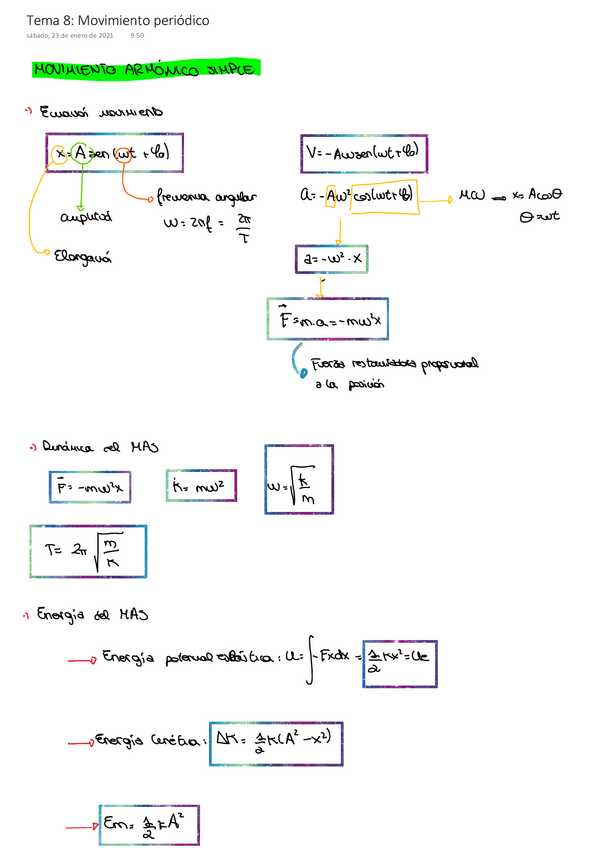 Tema 8: Movimiento periódico
sábado, 23 de enero de 2021 9:50
MOVIMIENTO ARMÓNICO SIMPLE
·) Ecuación movimiento
x = A sen (ωt + φ₀)
amplitud
Elongación
frecuencia angular
ω = 2πf = 2π/T
V = -Aωsen(ωt + φ₀)
a = -Aω² cos(ωt + φ₀)
MCU → x = A cosθ
θ = ωt
a = -ω² · x
F⃗ = m.a = -mω²x
Fuerza restauradora proporcional
a la posición
·) Dinámica del MAS
F⃗ = -mω²x
K = mω²
ω = √(k/m)
T = 2π √(m/K)
·) Energía del MAS
→ Energía potencial elástica: U = ∫-Fxdx = 1/2 Kx² = Ue
→ Energía Cinética: ΔK = 1/2 K(A² - x²)
→ Em = 1/2 KA²